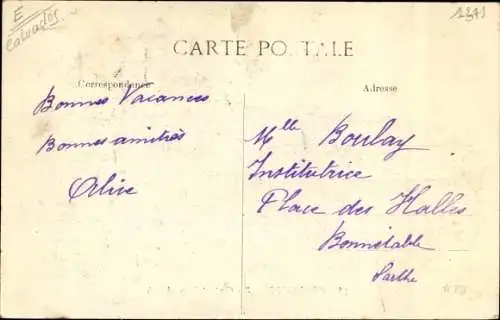 E
Calvados
1371
CARTE POSTALE
Correspondance
Adresse
Bonnes Vacances
Bonnes amitiés
Alice
Mlle Boulay
Institutrice
Place des Halles
Bonnétable
Sarthe